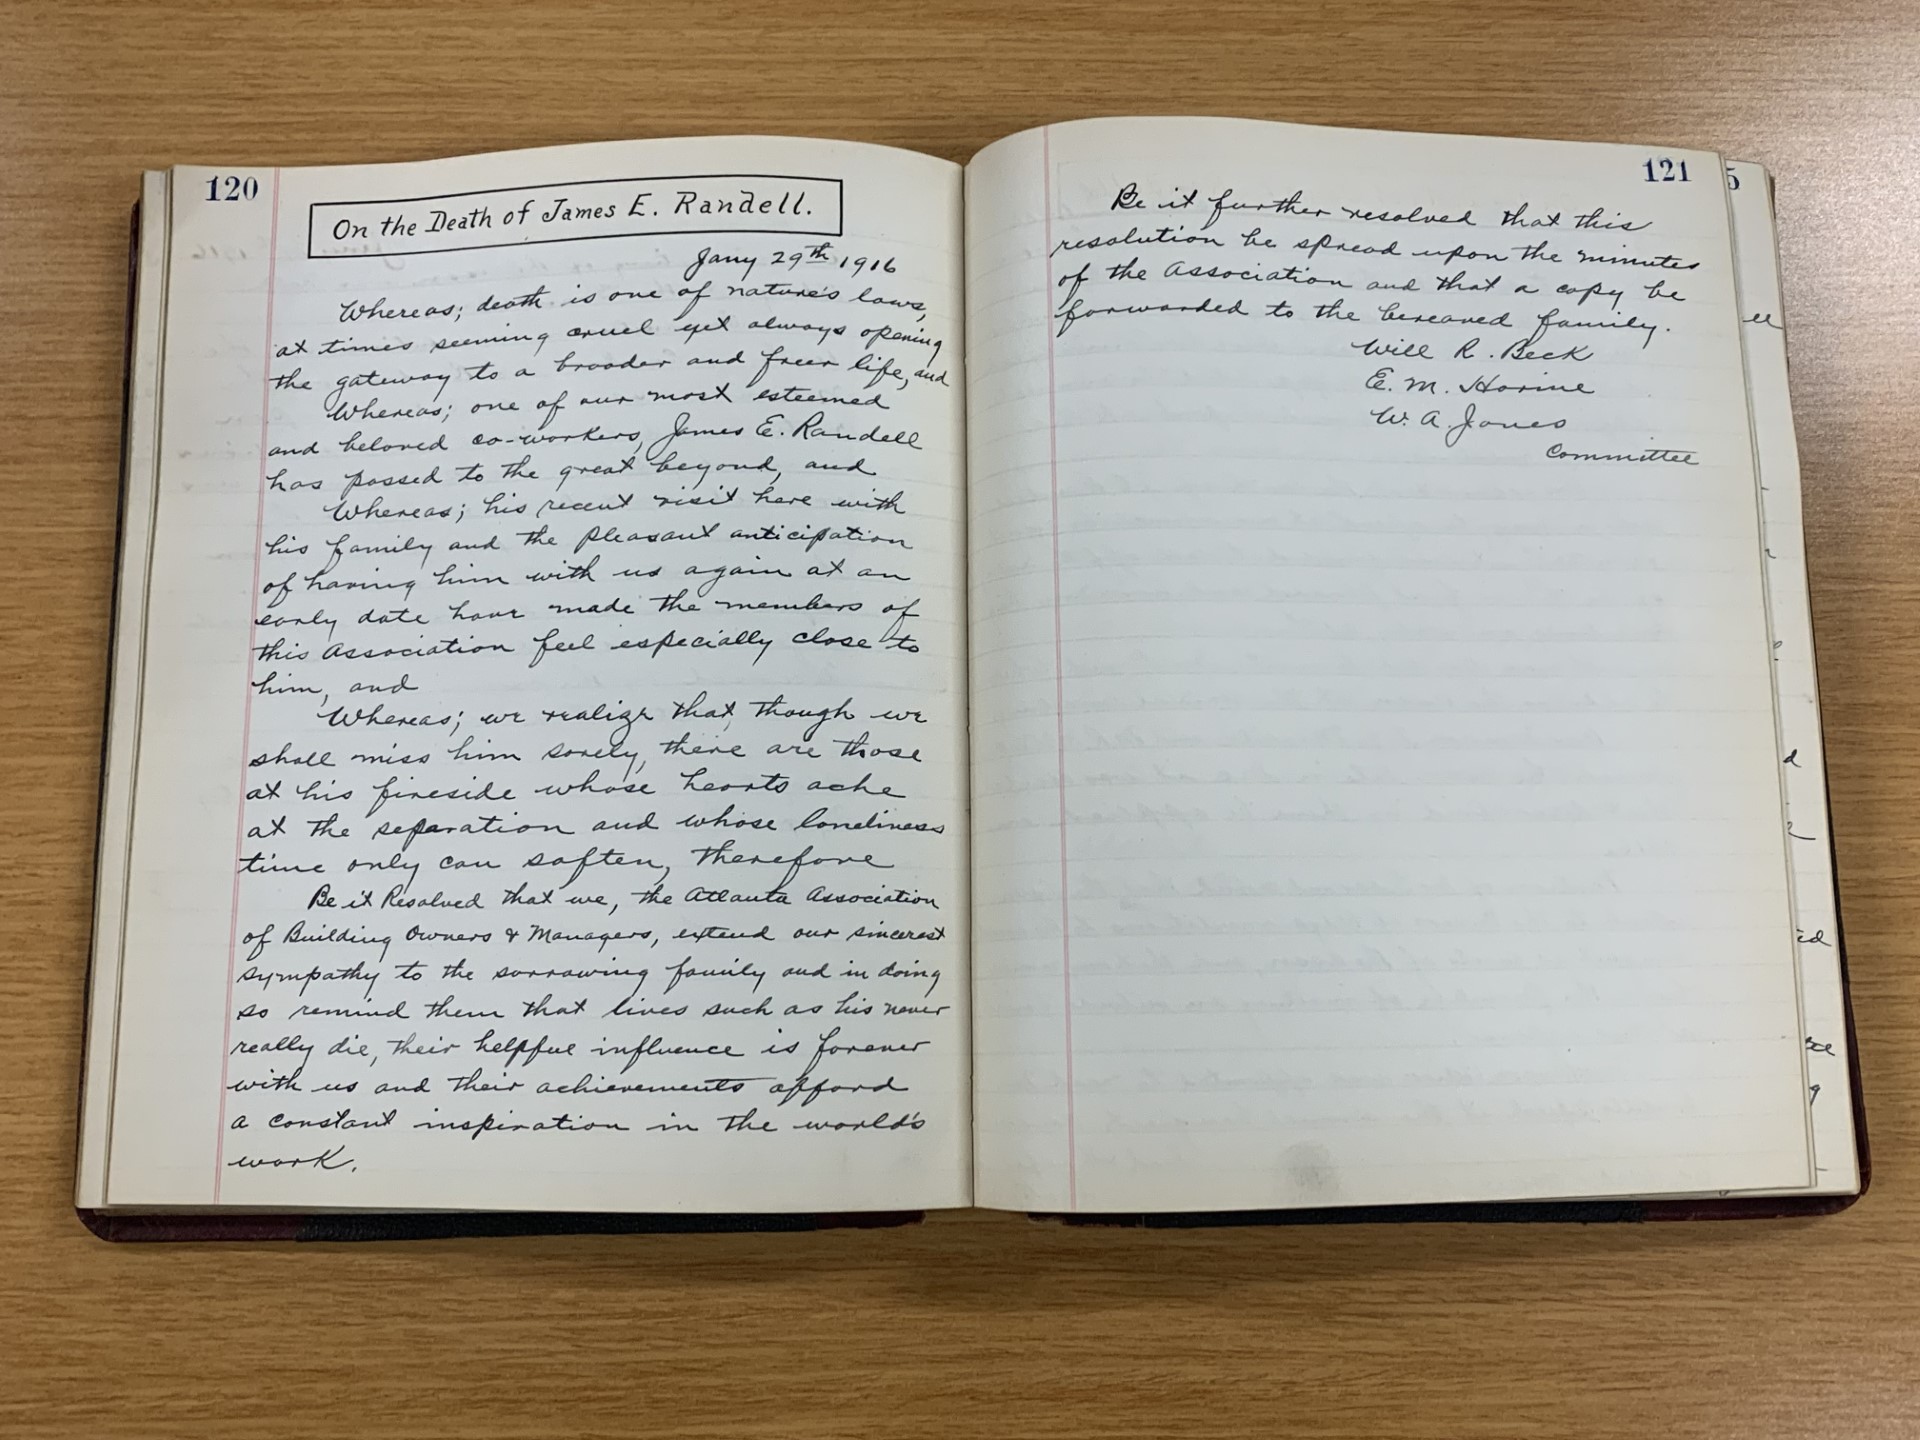 120
On the Death of James E. Randell.
Jany 29th 1916
Whereas; death is one of nature's laws,
at times seeming cruel yet always opening
the gateway to a broader and freer life, and
Whereas; one of our most esteemed
and beloved co-workers, James E. Randell
has passed to the great beyond, and
Whereas; his recent visit here with
his family and the pleasant anticipation
of having him with us again at an
early date have made the members of
this Association feel especially close to
him, and
Whereas; we realize that, though we
shall miss him sorely, there are those
at his fireside whose hearts ache
at the separation and whose loneliness
time only can soften, therefore
Be it Resolved that we, the Atlanta Association
of Building Owners & Managers, extend our sincerest
sympathy to the sorrowing family and in doing
so remind them that lives such as his never
really die, their helpful influence is forever
with us and their achievements afford
a constant inspiration in the world's
work.
121
Be it further resolved that this
resolution be spread upon the minutes
of the Association and that a copy be
forwarded to the bereaved family.
Will R. Beck
E. M. Horine
W. A. Jones
Committee